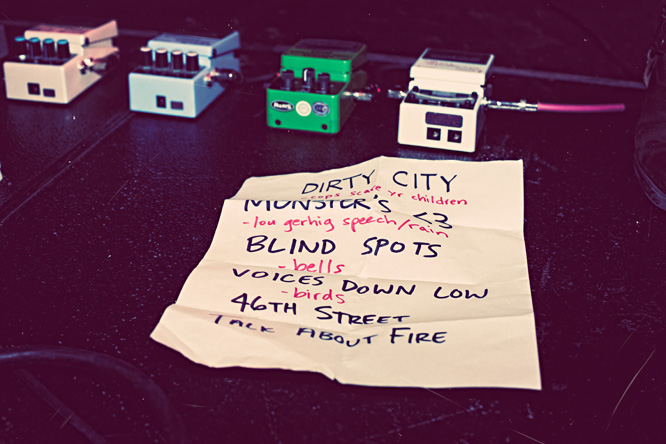 DIRTY CITY
-cops scare yr children
MONSTER'S <3
-lou gerhig speech/rain
BLIND SPOTS
-bells
VOICES DOWN LOW
-birds
46TH STREET
TALK ABOUT FIRE